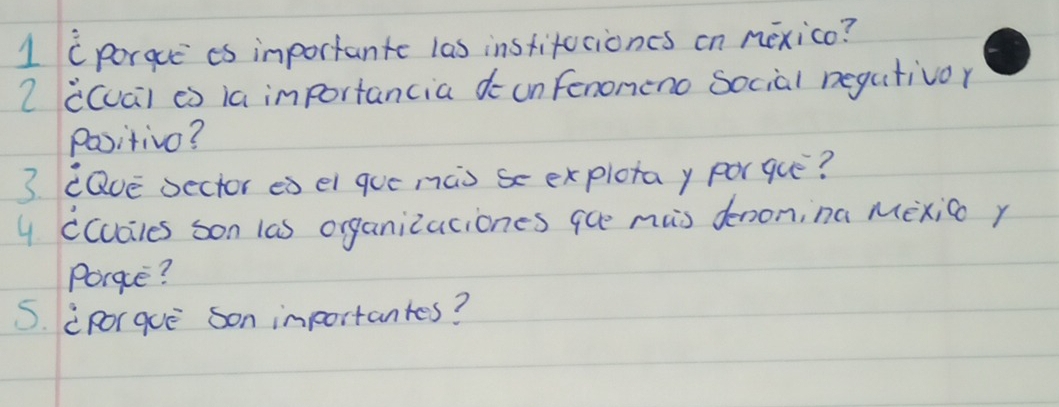 1 ¿porqué es importante las instituciones en méxico?
2 ¿Cuál es la importancia de un fenomeno Social negativo y
positivo?
3. ¿Qué sector es el que más se explota y por qué?
4 ¿Cuáles son las organizaciones que más denomina México y
porqué?
5. ¿Por qué son importantes?